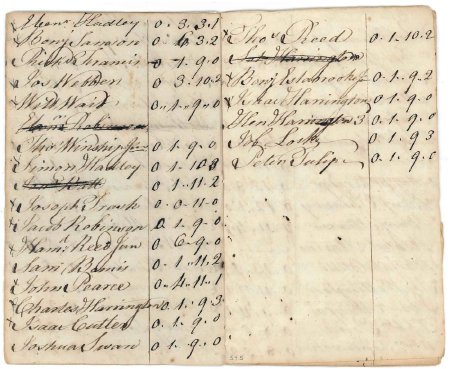 Eben.r Hadley 0.3.3.1
Benj Samson 0.6 3.2
Francis 0.1.9.0
Jos Webber 0 3.10.2
Will Wait 0.1.9.0
Robinson
Winship Jr 0 1.9.0
Simon Hadley 0.1.10.3
0.1.11.2
Joseph Trask 0.0.11.0
Jacob Robinson 0.1.9.0
Ham.d Reed Jun 0.6.9.0
Sam.l Bemis 0.1.11.2
John Pearce 0.4.11.1
Charles Harrington 0.1.9 3
Isaac Cutler 0.1.9.0
Joshua Swan 0 1.9.0
Tho.s Reed 0.1.10.2
Harrington
Benj Estabrook 0.1.9.2
Isaac Harrington 0.1.9.0
Harrington 3 0.1.9.0
Locke 0.1.9 3
Peter Tulip 0.1.9.0